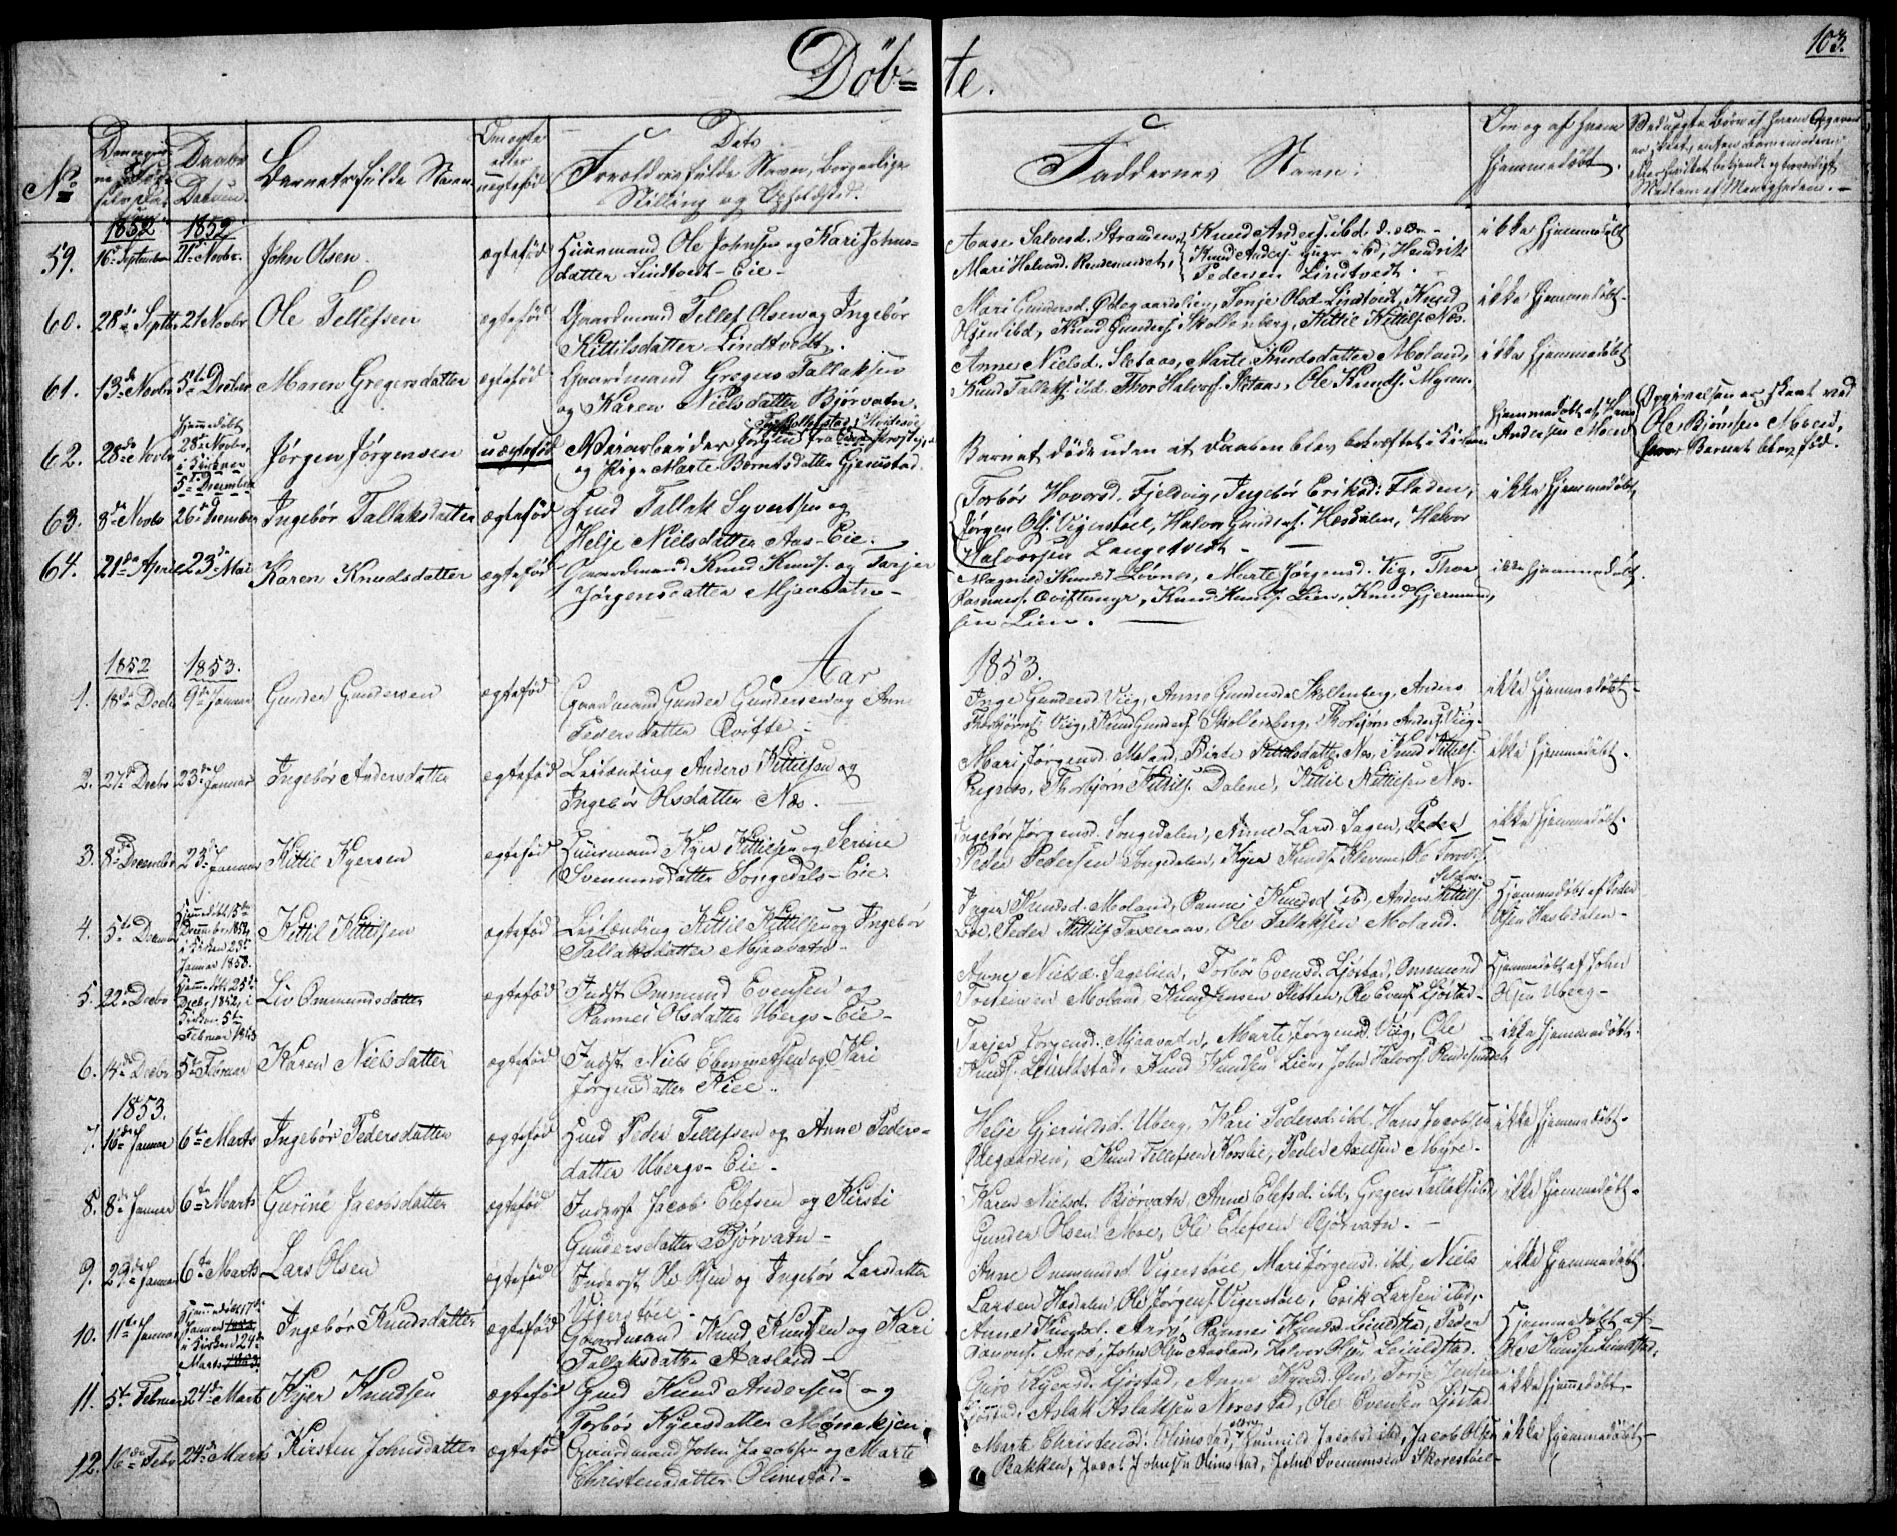 103.
Döb=te.
No
Daabs Datum.
Barnets fulde Navn
Om ægte eller uægtefød
Dets
Forældres fulde Navn, borgerlige
Stilling og Opholdsted.
Faddernes Navn.
Om og af hvem
hjemmedøbt.
1852 1852
59. 16de September 21de Novbr. John Olsen. ægtefød Huusmand Ole Johnsen og Kari Johns-
datter Lindtvedt-Eie-
Aase Salvesd. Stranden, Knud Anders. ibd.
Mari Halvord. Rendesundet, Hendrik
Pedersen Lindtvedt.
ikke hjemmedøbt
60. 28de Septb. 21 Novbr Ole Tellefsen ægtefød Gaardmand Tellef Olsen og Ingebør
Kittilsdatter Lindtvedt.
Mari Gundersd. Ødegaardslien, Tonje Olsd. Lindtvedt, Knud
Olsen ibd, Knud Gunders. Skollenberg, Kittil Kittils. Næs.
ikke hjemmedøbt.
61. 13de Novbr 5te Decbr Maren Gregersdatter ægtefød Gaardmand Gregers Tallaksen
og Karen Nielsdatter Bjørvatn.
Anne Nielsd. Sletaas, Marte Knudsdatter Moland,
Knud Tallaks. ibd. Thor Halvors. Sletaas, Ole Knuds. Myren.
ikke hjemmedøbt
62. 28de Novbr Hjemmedøbt
28de Novbr,
i Kirken
5te December
Jørgen Jørgensen uægtefød Veiarbeider Jørgen fra
og Pige Marte Berntsdatter Gjerustad.
Barnet døde uden at Daaben blev bekræftet i Kirken
Hjemmedøbt af Hans
Andersen Moen
Opgivelsen er skeet ved
Ole Bjørnsen Moen,
hvor Barnet blev fød.
63. 8de Novbr 26de December Ingebør Tallaksdatter ægtefød Huusmd Tallak Syvertsen og
Helje Nielsdatter Aas-Eie.
Torbør Hovorsd. Fjeldvig, Ingebør Eriksd. Fladen,
Jørgen Ols. Vigerstøel, Halvor Gunders. Hæsdalen, Halvor
Halvorsen Langetvedt-
ikke hjemmedøbt
64. 21de April 23de Mai Karen Knudsdatter ægtefød Gaardmand Knud Knuds. og Tarjer
Jørgensdatter Mjaavatn-
Magnild Knudsd. Løvnes, Marte Jørgensd. Vig, Thor
Rasmuss. Qviftemyr, Knud Knuds. Lien, Knud Gjermund-
sen Lien.
ikke hjemmedøbt
Aar 1853.
1852 1853.
1. 18de Decbr 9de Januar Gunder Gundersen ægtefød Gaardmand Gunder Gundersen og Anne
Pedersdatter Qvifte-
Inge Gundersd. Viig, Anne Gundersd. Skollenberg, Anders
Thorbjørns. Viig, Knud Gunders. Skollenberg, Thorbjørn Anders. Viig-
ikke hjemmedøbt-
2. 27de Decbr 23de Januar Ingebør Andersdatter ægtefød Leilænding Anders Kittilsen og
Ingebør Olsdatter Næs.
Mari Jørgensd. Moland, Birte Kittilsdatter Næs, Knud Kittils.
Thorbjørn Kittils. Dalene, Kittil Kittilsen Næs.
ikke hjemmedøbt.
3. 8de December 23de Januar Kittil Kyersen ægtefød Huusmand Kyer Kittilsen og Serine
Svenumsdatter Songedals-Eie.
Ingebør Jørgensd. Songedalen, Anne Larsd. Sagen, Peder
Peder Pedersen Songedalen, Kyer Knuds. Kleven, Ole Torers.
ikke hjemmedøbt.
4. 5te December Hjemmedøbt 15de
December 1852,
i Kirken 23de
Januar 1853.
Kittil Kittilsen ægtefød Leilænding Kittil Kittilsen og Ingebør
Tallaksdatter Mjaavatn-
Inger Knudsd. Moland, Rannei Knudsd ibd, Anders Kittils.
Boe, Peder Kittils Taxeraas, Ole Tallaksen Moland.
Hjemmedøbt af Peder
Olsen Hasledalen-
5. 22de Decbr Hjemmedøbt 25de
Decbr 1852, i
Kirken 5te
Februar 1853
Liv Ommundsdatter ægtefød Inds. Ommund Evensen og
Rannei Olsdatter Ubergs-Eie-
Anne Nielsd. Sagelien, Torbør Evensd. Ljøstad, Ommund
Torstensen Moland, Knud Jensen Sletten, Ole Evens. Ljøstad-
Hjemmedøbt af John
Olsen Uberg-
6. 14de Decbr 5te Februar Karen Nielsdatter ægtefød Inds. Niels Emmretsen og Kari
Jørgensdatter Kile.
Tarjer Jørgensd. Mjaavatn, Marte Jørgensd. Viig, Ole
Knuds. Leiulstad, Knud Knudsen Lien, John Halvors. Rendesundet
ikke hjemmedøbt.
1853.
7. 16de Januar 6te Marts Ingebør Pedersdatter ægtefød Huusmd Peder Tellefsen og Anne Peders-
datter Ubergs-Eie-
Helje Gjeruldsd. Uberg, Kari Pedersd. ibd. Hans Jacobsen
Ødegaarden, Knud Tellefsen Korslie, Peder Axelsen Myre-
ikke hjemmedøbt-
8. 8de Januar 6te Marts Gurine Jacobsdatter ægtefød Inderst Jacob Elefsen og Kirsti
Gundersdatter Bjørvatn-
Karen Nielsd. Bjørvatn, Anne Elefsd. ibd, Gregers Tallaks. ibd,
Gunder Olsen Moe, Ole Elefsen Bjørvatn.-
ikke hjemmedøbt-
9. 29de Januar 6te Marts Lars Olsen ægtefød Inderst Ole Olsen og Ingebør Larsdatter
Vigerstøel-
Anne Ommundsd Vigerstøel, Mari Jørgensd. ibd, Niels
Larsen Hasdalen, Ole Jørgens. Vigerstøel, Erik Larsen ibd,-
ikke hjemmedøbt.
10. 11te Januar Hjemmedøbt 17de
Januar 1853,
i Kirken 24de
Marts 1853
Ingebør Knudsdatter ægtefød Gaardmand Knud Knudsen og Kari
Tallaksdatter Aasland-
Anne Knudsd. Aarø, Rannei Knudsd. Leiulstad, Peder
Aarø, John Olsen Aasland, Halvor Olsen Leiuldstad.
Hjemmedøbt af-
Ole Knudsen Leiulstad.
11. 5te Februar 24de Marts Kyer Knudsen ægtefød Huusmd Knud Andersen og
Torbør Kyersdatter Mønekjen
Guro Kyersd. Ljøstad, Anne Kyersd. Øen, Torje Jensen
Ljøstad, Aslak Aslaksen Norestad, Ole Evensen Ljøstad
ikke hjemmedøbt-
12. 16de Febr 24de Marts Kirsten Johnsdatter ægtefød Gaardmand John Jacobsen og Marte
Christensdatter Olimstad-
Marte Christensd. Olimstad, Gunnild Jacobsd. ibd, Jacob Olsen
Bakken, Jacob Johnsen Olimstad, John Svenumsen Skorestøel-
ikke hjemmedøbt-